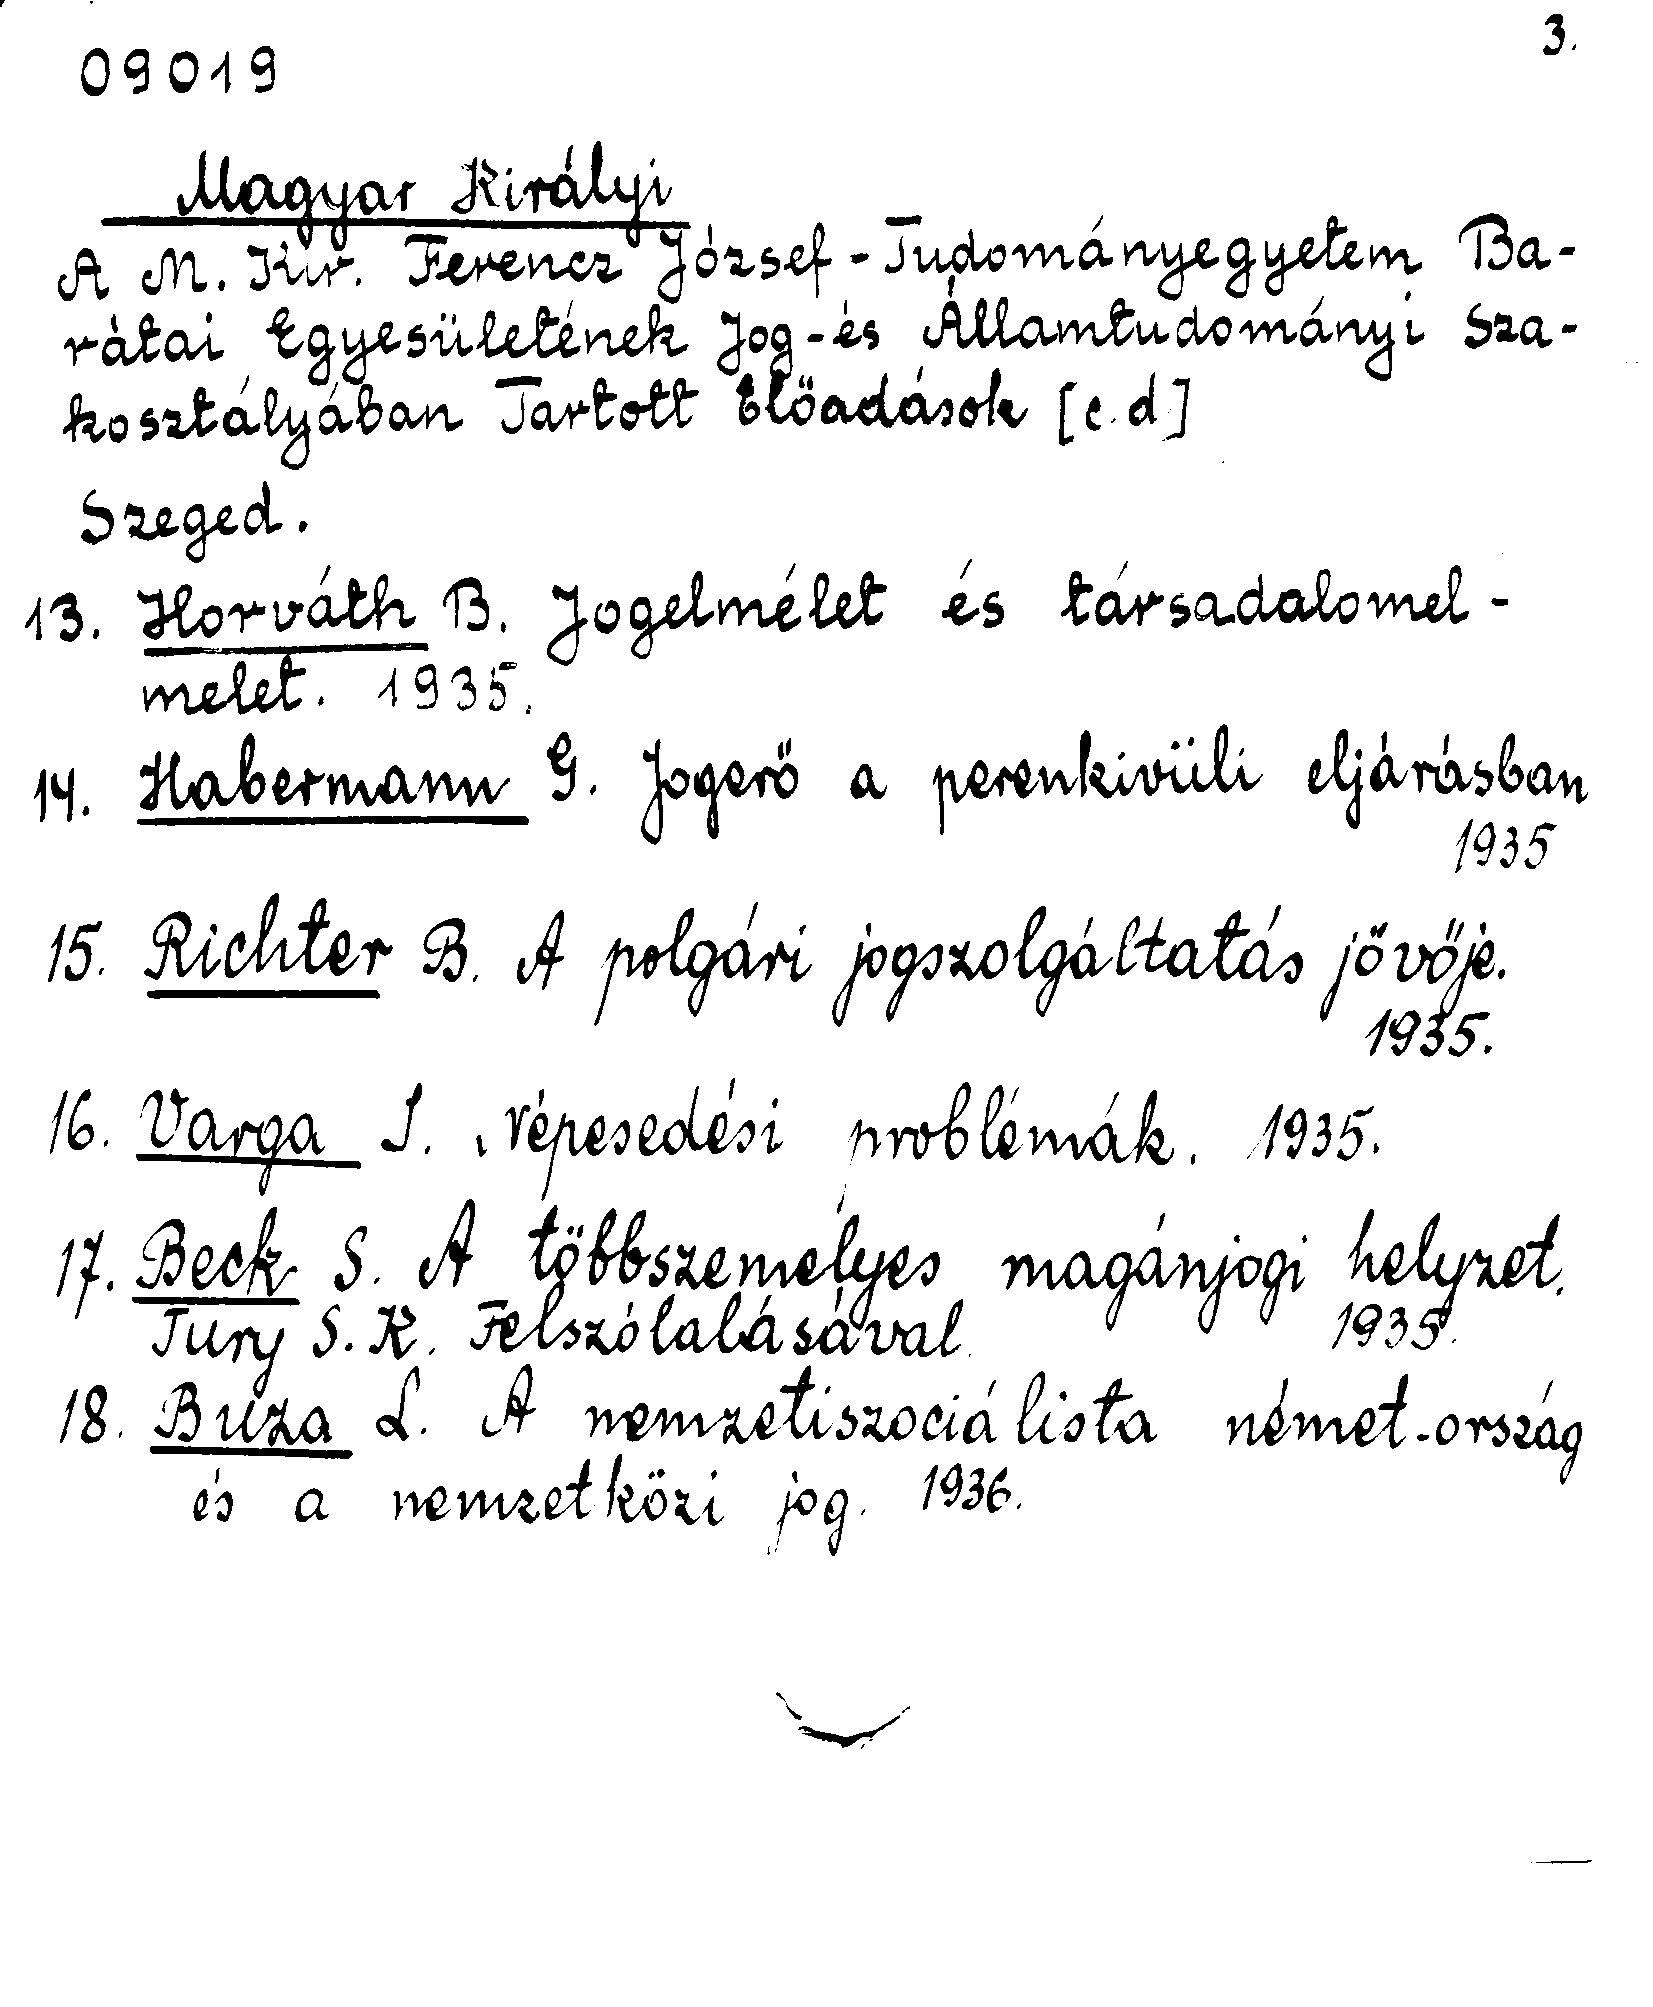 3.
09019
Magyar Királyi
A M. Kir. Ferencz József-Tudományegyetem Ba-
rátai Egyesületének Jog-és Államtudományi Sza-
kosztályában Tartott Előadások [c.d]
Szeged.
13. Horváth B. Jogelmélet és társadalomel-
melet. 1935.
14. Habermann G. Jogerő a perenkivüli eljárásban
1935
15. Richter B. A polgári jogszolgáltatás jövője.
1935.
16. Varga I. Népesedési problémák. 1935.
17. Beck S. A többszemélyes magánjogi helyzet.
Tury S.K. Felszólalásával. 1935.
18. Buza L. A nemzetiszociálista német-ország
és a nemzetközi jog. 1936.